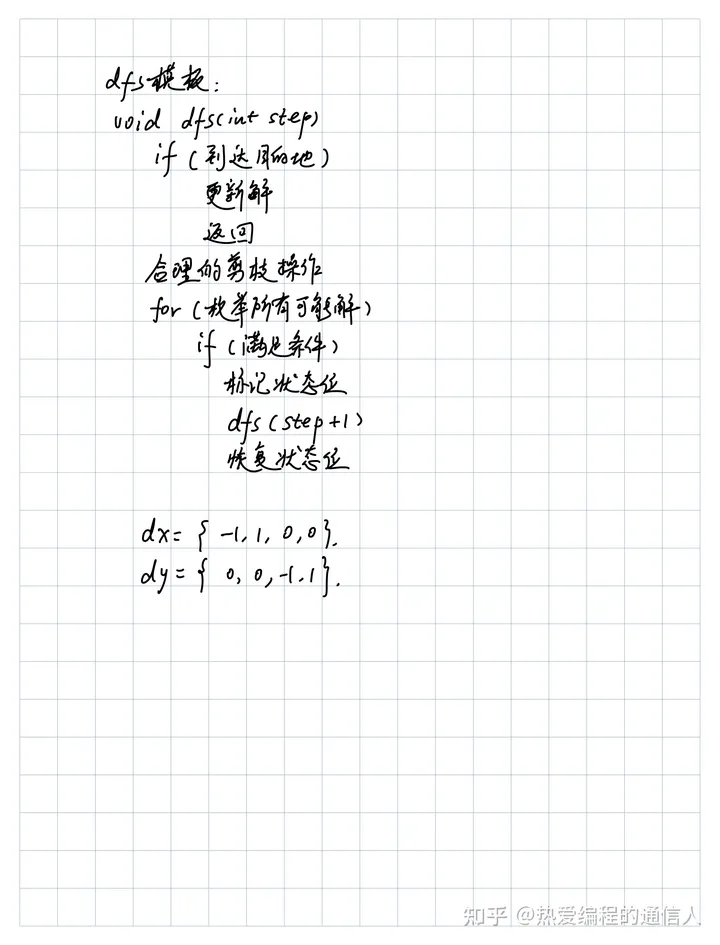 dfs模板:
void dfs(int step)
if (到达目的地)
更新解
返回
合理的剪枝操作
for (枚举所有可能解)
if (满足条件)
标记状态位
dfs(step+1)
恢复状态位
dx={ -1, 1, 0, 0}.
dy={ 0, 0, -1, 1}.
知乎 @热爱编程的通信人